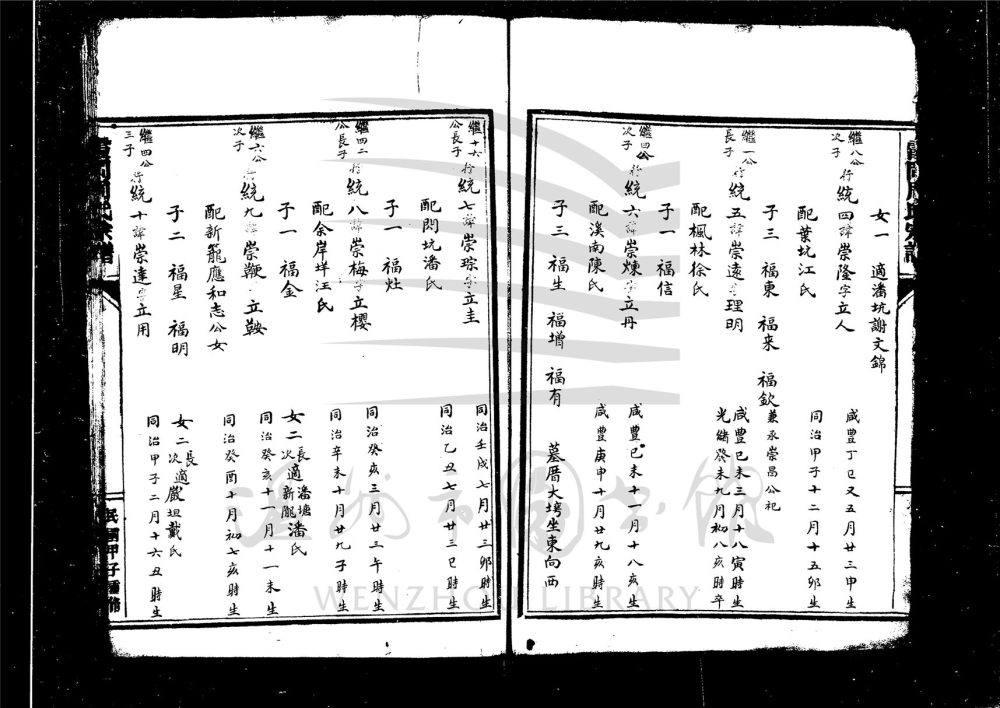 女一　適潘坑謝文錦
繼八公次子　行統四諱崇隆字立人　咸豐丁巳又五月廿三申生
配葉坑江氏　同治甲子十二月十五卯生
子三　福東　福來　福欽兼承崇昌公祀
繼一公長子　行統五諱崇遠字理明　咸豐己未三月十八寅時生　光緒癸未九月初八亥時卒
配楓林徐氏
子一　福信
繼四公次子　行統六諱崇煉字立丹　咸豐己未十一月十八亥生
配溪南陳氏　咸豐庚申十月廿九亥時生
子三　福生　福增　福有　墓厝大塆坐東向西
繼十六公長子　行統七諱崇琮字立圭　同治壬戌七月廿三卯時生
配閃坑潘氏　同治乙丑七月廿三巳時生
子一　福灶
繼四二公長子　行統八諱崇梅字立櫻　同治癸亥三月廿三午時生
配余岸垟汪氏　同治辛未十月廿九子時生
子一　福金　女二　長適潘塘　次新龍潘氏
繼六公次子　行統九諱崇鞭字立鞍　同治癸亥十一月十一未生
配新龍應和志公女　同治癸酉十月初七亥時生
子二　福星　福明　女二　長　次適嚴坦戴氏
繼四公三子　行統十諱崇達字立用　同治甲子二月十六丑時生
民國甲子重修
WENZHOU LIBRARY